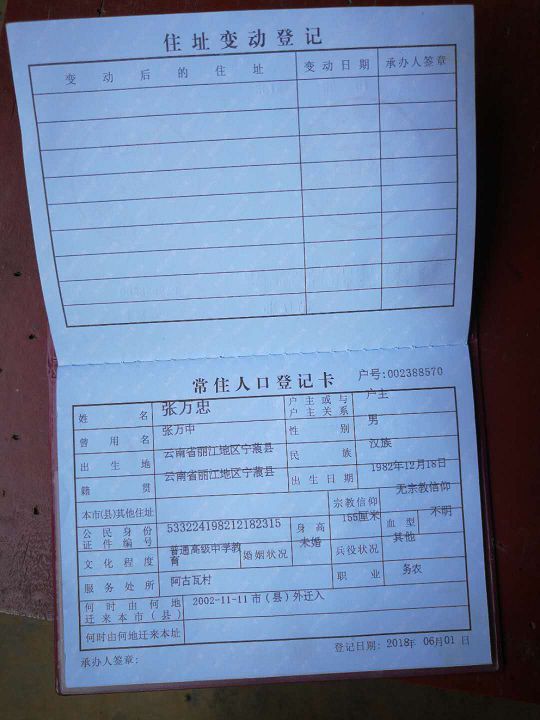 住址变动登记
变动后的住址 变动日期 承办人签章
常住人口登记卡
户号:002388570
姓名 张万忠 户主或与户主关系 户主
曾用名 张万中 性别 男
出生地 云南省丽江地区宁蒗县 民族 汉族
籍贯 云南省丽江地区宁蒗县 出生日期 1982年12月18日
本市(县)其他住址 宗教信仰 无宗教信仰
公民身份证件编号 533224198212182315 身高 155厘米 血型 不明
文化程度 普通高级中学教育 婚姻状况 未婚 兵役状况 其他
服务处所 阿古瓦村 职业 务农
何时由何地迁来本市(县) 2002-11-11市(县)外迁入
何时由何地迁来本址
承办人签章: 登记日期:2018年 06月01 日